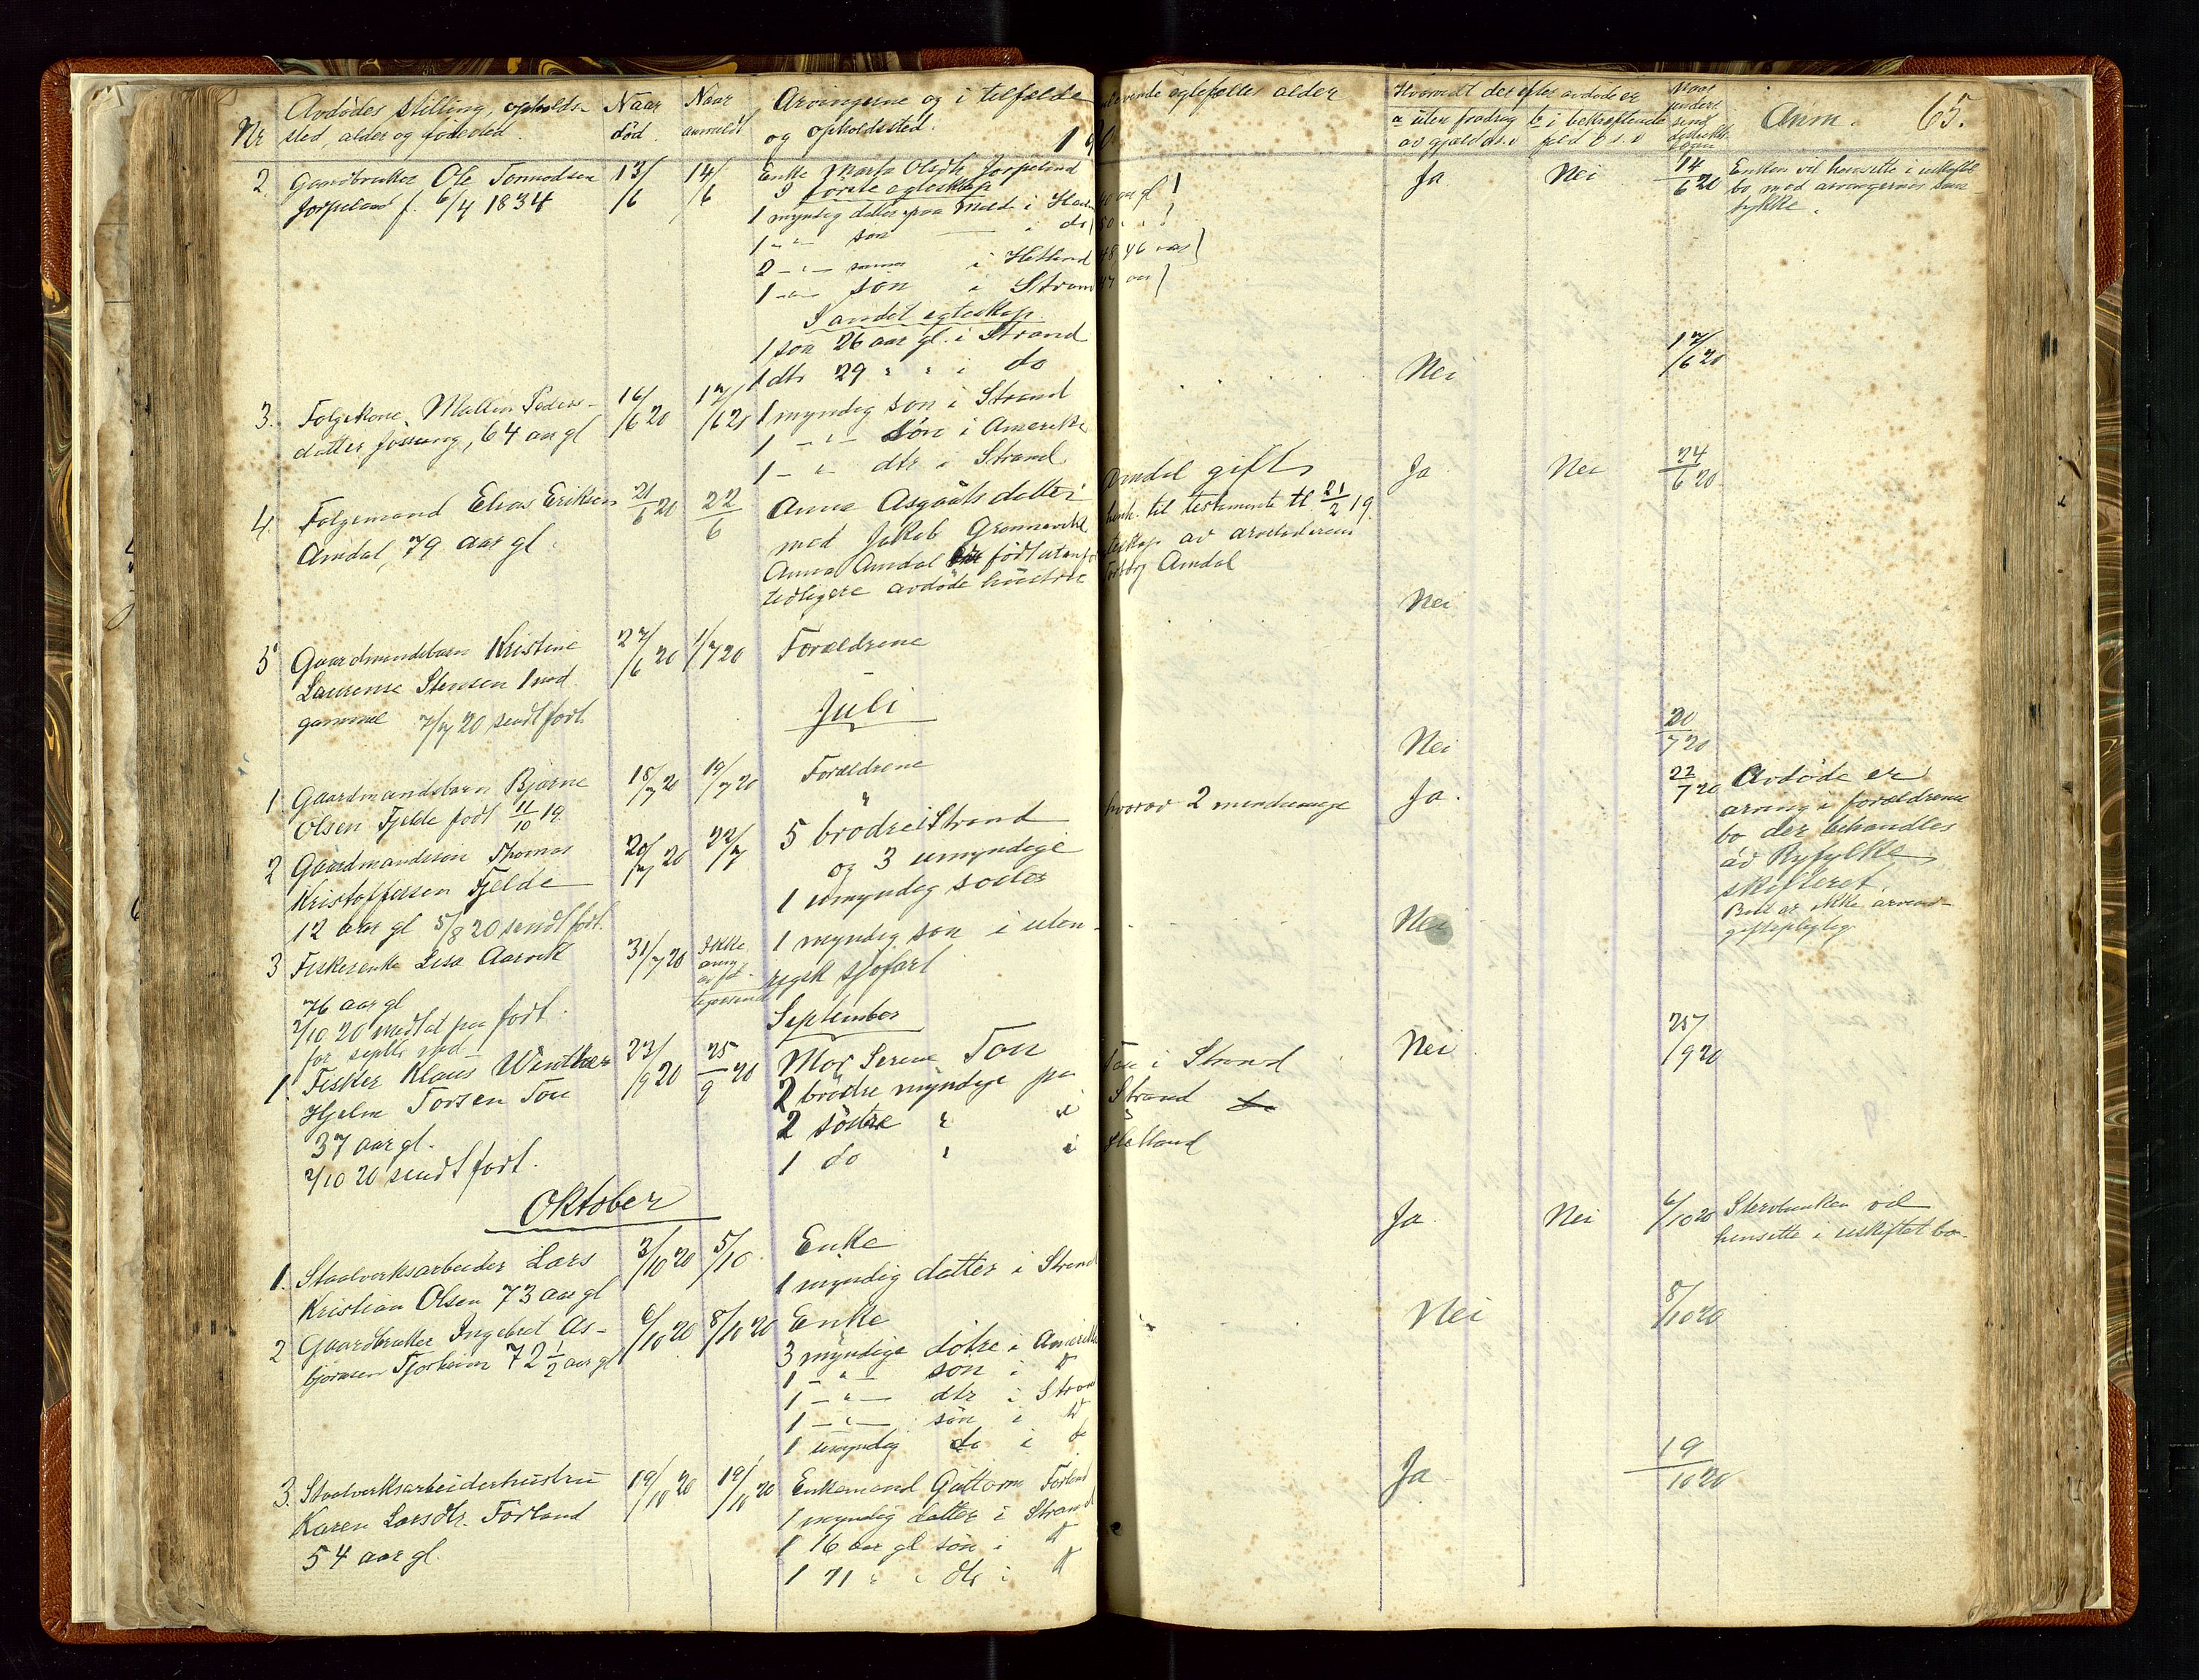 65.
Nr Avdødes stilling, opholds- sted, alder og fødested.
Naar død.
Naar anmeldt
Arvingerne og i tilfælde levende egtefælles alder og opholdssted.
Hvorvidt der efter avdøde er
a uten fradrag b i bekræftende
av gjæld o.s.v. fald o.s.v
Naar
Anm.
2 Gaardbruker Ole Tormodsen
Jørpeland f. 6/4 1834
13/6
14/6
Enke Marta Olsdtr Jørpeland
I første egteskap
1 myndig datter paa Mæle i
1 -"- søn i do
2 -"- sønner i Hetland 48 46 aar
1 -"- søn i Strand 47 aar
I andet egteskap.
1 søn 26 aar gl. i Strand
1 dtr 29 " " i do
Ja
Nei
14/6 20
Enken vil hensitte i uskiftet
bo med arvingernes sam-
tykke.
3. Følgekone Mallin Peders-
datter Fossang, 64 aar gl
16/6 20
17/6 20
1 myndig søn i Strand
1 -"- søn i Amerika
1 -"- dtr i Strand
Nei
17/6 20
4. Følgemand Elias Eriksen
Amdal, 79 aar gl.
21/6 20
22/6
Anna Asgautsdatter Amdal gift
med Jakob Grønnevik henh. til testamente tl 21/2 19.
Anna Amdal er født utenfor egteskap av arveladerens
tidligere avdøde hustru Amdal
Ja
Nei
24/6 20
5 Gaardmandsbarn Kristine
Laurense Stensen 1 mnd.
gammel 7/7 20 sendt fodt.
27/6 20
1/7 20
Forældrene
Nei
Juli
1 Gaardmandsbarn Bjarne
Olsen Fjelde født 11/10 19
18/7 20
19/7 20
Forældrene
Nei
20/7 20
2 Gaardmandssøn Thomas
Kristoffersen Fjelde
12 aar gl 5/8 20 sendt fodt.
20/7 20
22/7
5 brødre i Strand hvorav 2 mindreaarige
og 3 umyndige
1 umyndig søster
Ja.
22/7 20
Avdøde er
arving i forældrenes
bo der behandles
av Ryfylke
skifteret.
Boet er ikke arveav-
giftspligtig.
3 Fiskerenke Lisa Aarvik
76 aar gl
2/10 20 meddelt paa fodt.
for septbr md.
31/7 20
Ikke
1 myndig søn i uten-
rigsk sjøfart
Nei
September
1. Fisker Klaus Winther
Hjelm Torsen Tou
37 aar gl.
2/10 20 sendt fodt.
23/9 20
25/9 20
Mor Serene Tou Tou i Strand
2 brødre myndige paa Strand
2 søstre " i "
1 do " i Hetland
Nei
25/9 20
Oktober
1. Staalverksarbeider Lars
Kristian Olsen 73 aar gl
3/10 20
5/10
Enke
1 myndig datter i Strand
Ja.
Nei
6/10 20
Stervbuenken vil
hensitte i uskiftet bo.
2 Gaardbruker Ingebret As-
bjørnsen Fjorheim 72 1/2 aar gl
6/10 20
8/10 20
Enke
3 myndige døtre i Amerika
1 -"- søn i do
1 -"- dtr i Strand
1 -"- søn i do
1 umyndig do i do
Nei
8/10 20
3. Staalverksarbeiderhustru
Karen Larsdtr. Førland
54 aar gl.
19/10 20
19/10 20
Enkemand Guttorm Førland
1 myndig datter i Strand
1 16 aar gl søn i do
1 11 " " dtr i do
Ja
19/10 20